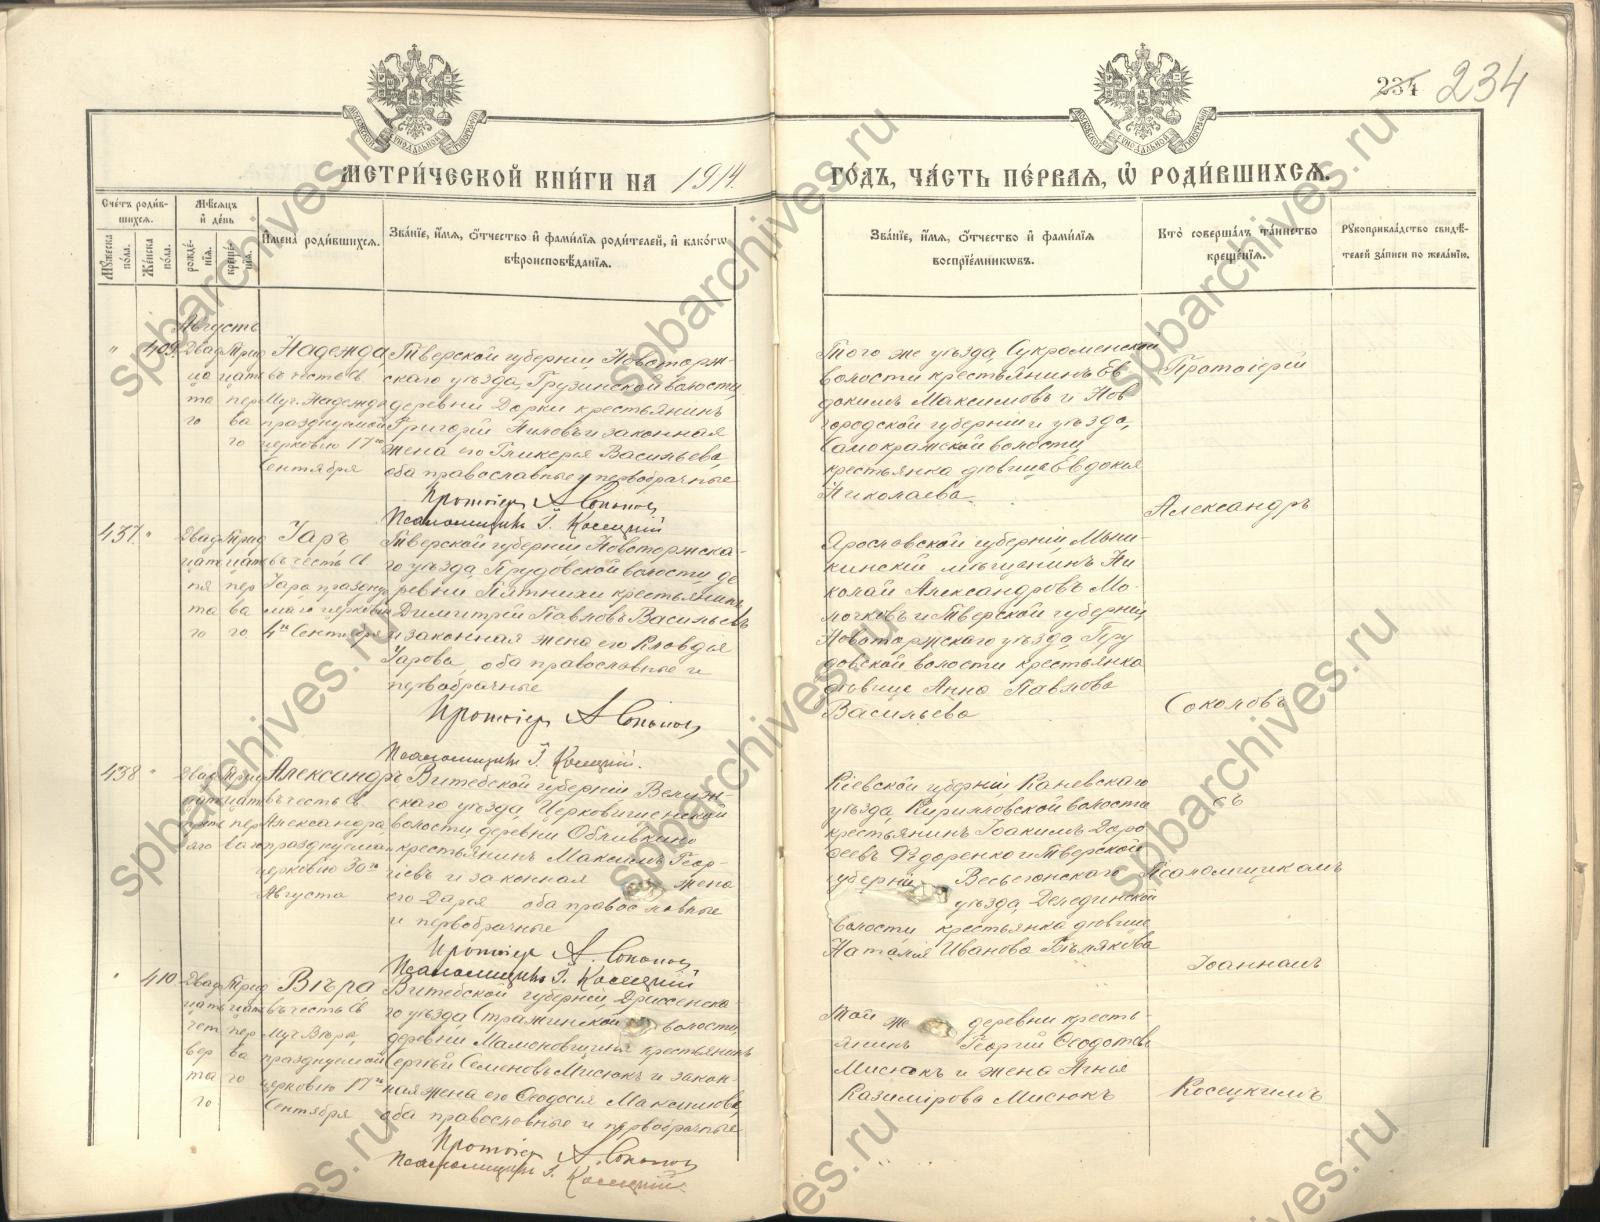 234 234
МЕТРИ́ЧЕСКОЙ КНИ́ГИ НА 1914. ГО́ДЪ, ЧА́СТЬ ПЕ́РВАЯ, Ѡ РОДИ́ВШИХСЯ.
Сче́тъ роди́в-
шихся.
Мѣ́сяцъ
и де́нь
Мꙋ́жеска
по́ла.
Же́нска
по́ла.
рожде́-
нїя.
креще́-
нїя.
И҆мена̀ роди́вшихся.
Зва́нїе, и҆́мя, ѻ҆́тчество и҆ фами́лїя роди́телей, и҆ како́гѡ
вѣроисповѣ́данїя.
Зва́нїе, и҆́мя, ѻ҆́тчество и҆ фами́лїя
воспрїе́мникѡвъ.
Кто̀ соверша́лъ та́инство
креще́нїя.
Рꙋкоприкла́дство свидѣ́-
телей за́писи по жела́нїю.
Августъ
" 409
Двад
ца
та
го
Трид
цать
пер
ва
го
Надежда
въ честь Св
Муч. Надежды
празднуемой
церковію 17го
Сентября
Тверской губерніи, Новоторж-
скаго уѣзда, Грузинской волости,
деревни Дорки крестьянинъ
Григорій Ниловъ и законная
жена его Гликерья Васильева,
оба православные и первобрачные
Протоіерей А. Соколов
Псаломщикъ І. Косецкій
Того же уѣзда Сукроменской
волости крестьянинъ Ев
докимъ Максимовъ и Нов
городской губерніи и уѣзда,
Самокражской волости,
крестьянка дѣвица Евдокія
Николаева.
Протоіерей
Александръ
437. "
Двад
цать
пя
та
го
Трид
цать
пер
ва
го
Уаръ
въ честь Св
Уара праздну
емаго церковію
4го Сентября
Тверской губерніи Новоторжска-
го уѣзда, Прудовской волости, де
ревни Пятнихи крестьянинъ
Димитрій Павловъ Васильевъ
и законная жена его Клавдія
Уарова, оба православные и
первобрачные
Протоіерей А. Соколов
Псаломщикъ І. Косецкій.
Ярославской губерніи, Мыш-
кинскій мѣщанинъ Ни
колай Александровъ Мо-
лочковъ и Тверской губерніи,
Новоторжскаго уѣзда, Пру
довской волости крестьянка
дѣвица Анна Павлова
Васильева
Соколовъ
438 "
Александръ
въ честь Св.
Александра,
празднуемаго
церковію 30го
Августа
Витебской губерніи Велиж-
скаго уѣзда, Церковищенской
волости деревни Обливкино
крестьянинъ Максимъ Геор-
гіевъ и законная жена
его Дарія оба православные
и первобрачные
Протоіерей А. Соколов
Псаломщикъ І. Косецкій
Кіевской губерніи, Каневскаго
уѣзда, Кирилловской волости
крестьянинъ Іоакимъ Доро
феевъ Ѳедоренко и Тверской
губерніи Весьегонскаго
уѣзда, Делединской
волости крестьянка дѣвица
Наталія Иванова Бѣлякова
съ
Псаломщикомъ
Іоанномъ
" 410
Двад
цать
чет
вер
та
го
Трид
цать
пер
ва
го
Вѣра,
въ честь Св
Муч. Вѣры,
празднуемой
церковію 17го
Сентября
Витебской губерніи, Дриссенска-
го уѣзда Стрѣлинской волости,
деревни Мамоновщина крестьянинъ
Сергѣй Семеновъ Мисюкъ и закон-
ная жена его Ѳеодосія Максимова,
оба православные и первобрачные
Протоіерей А. Соколов
Псаломщикъ І. Косецкій.
Той же деревни кресть-
янинъ Георгій Ѳеодотовъ
Мисюкъ и жена Агнія
Казимірова Мисюкъ
Косецкимъ
spbarchives.ru
spbarchives.ru
spbarchives.ru
spbarchives.ru
spbarchives.ru
spbarchives.ru